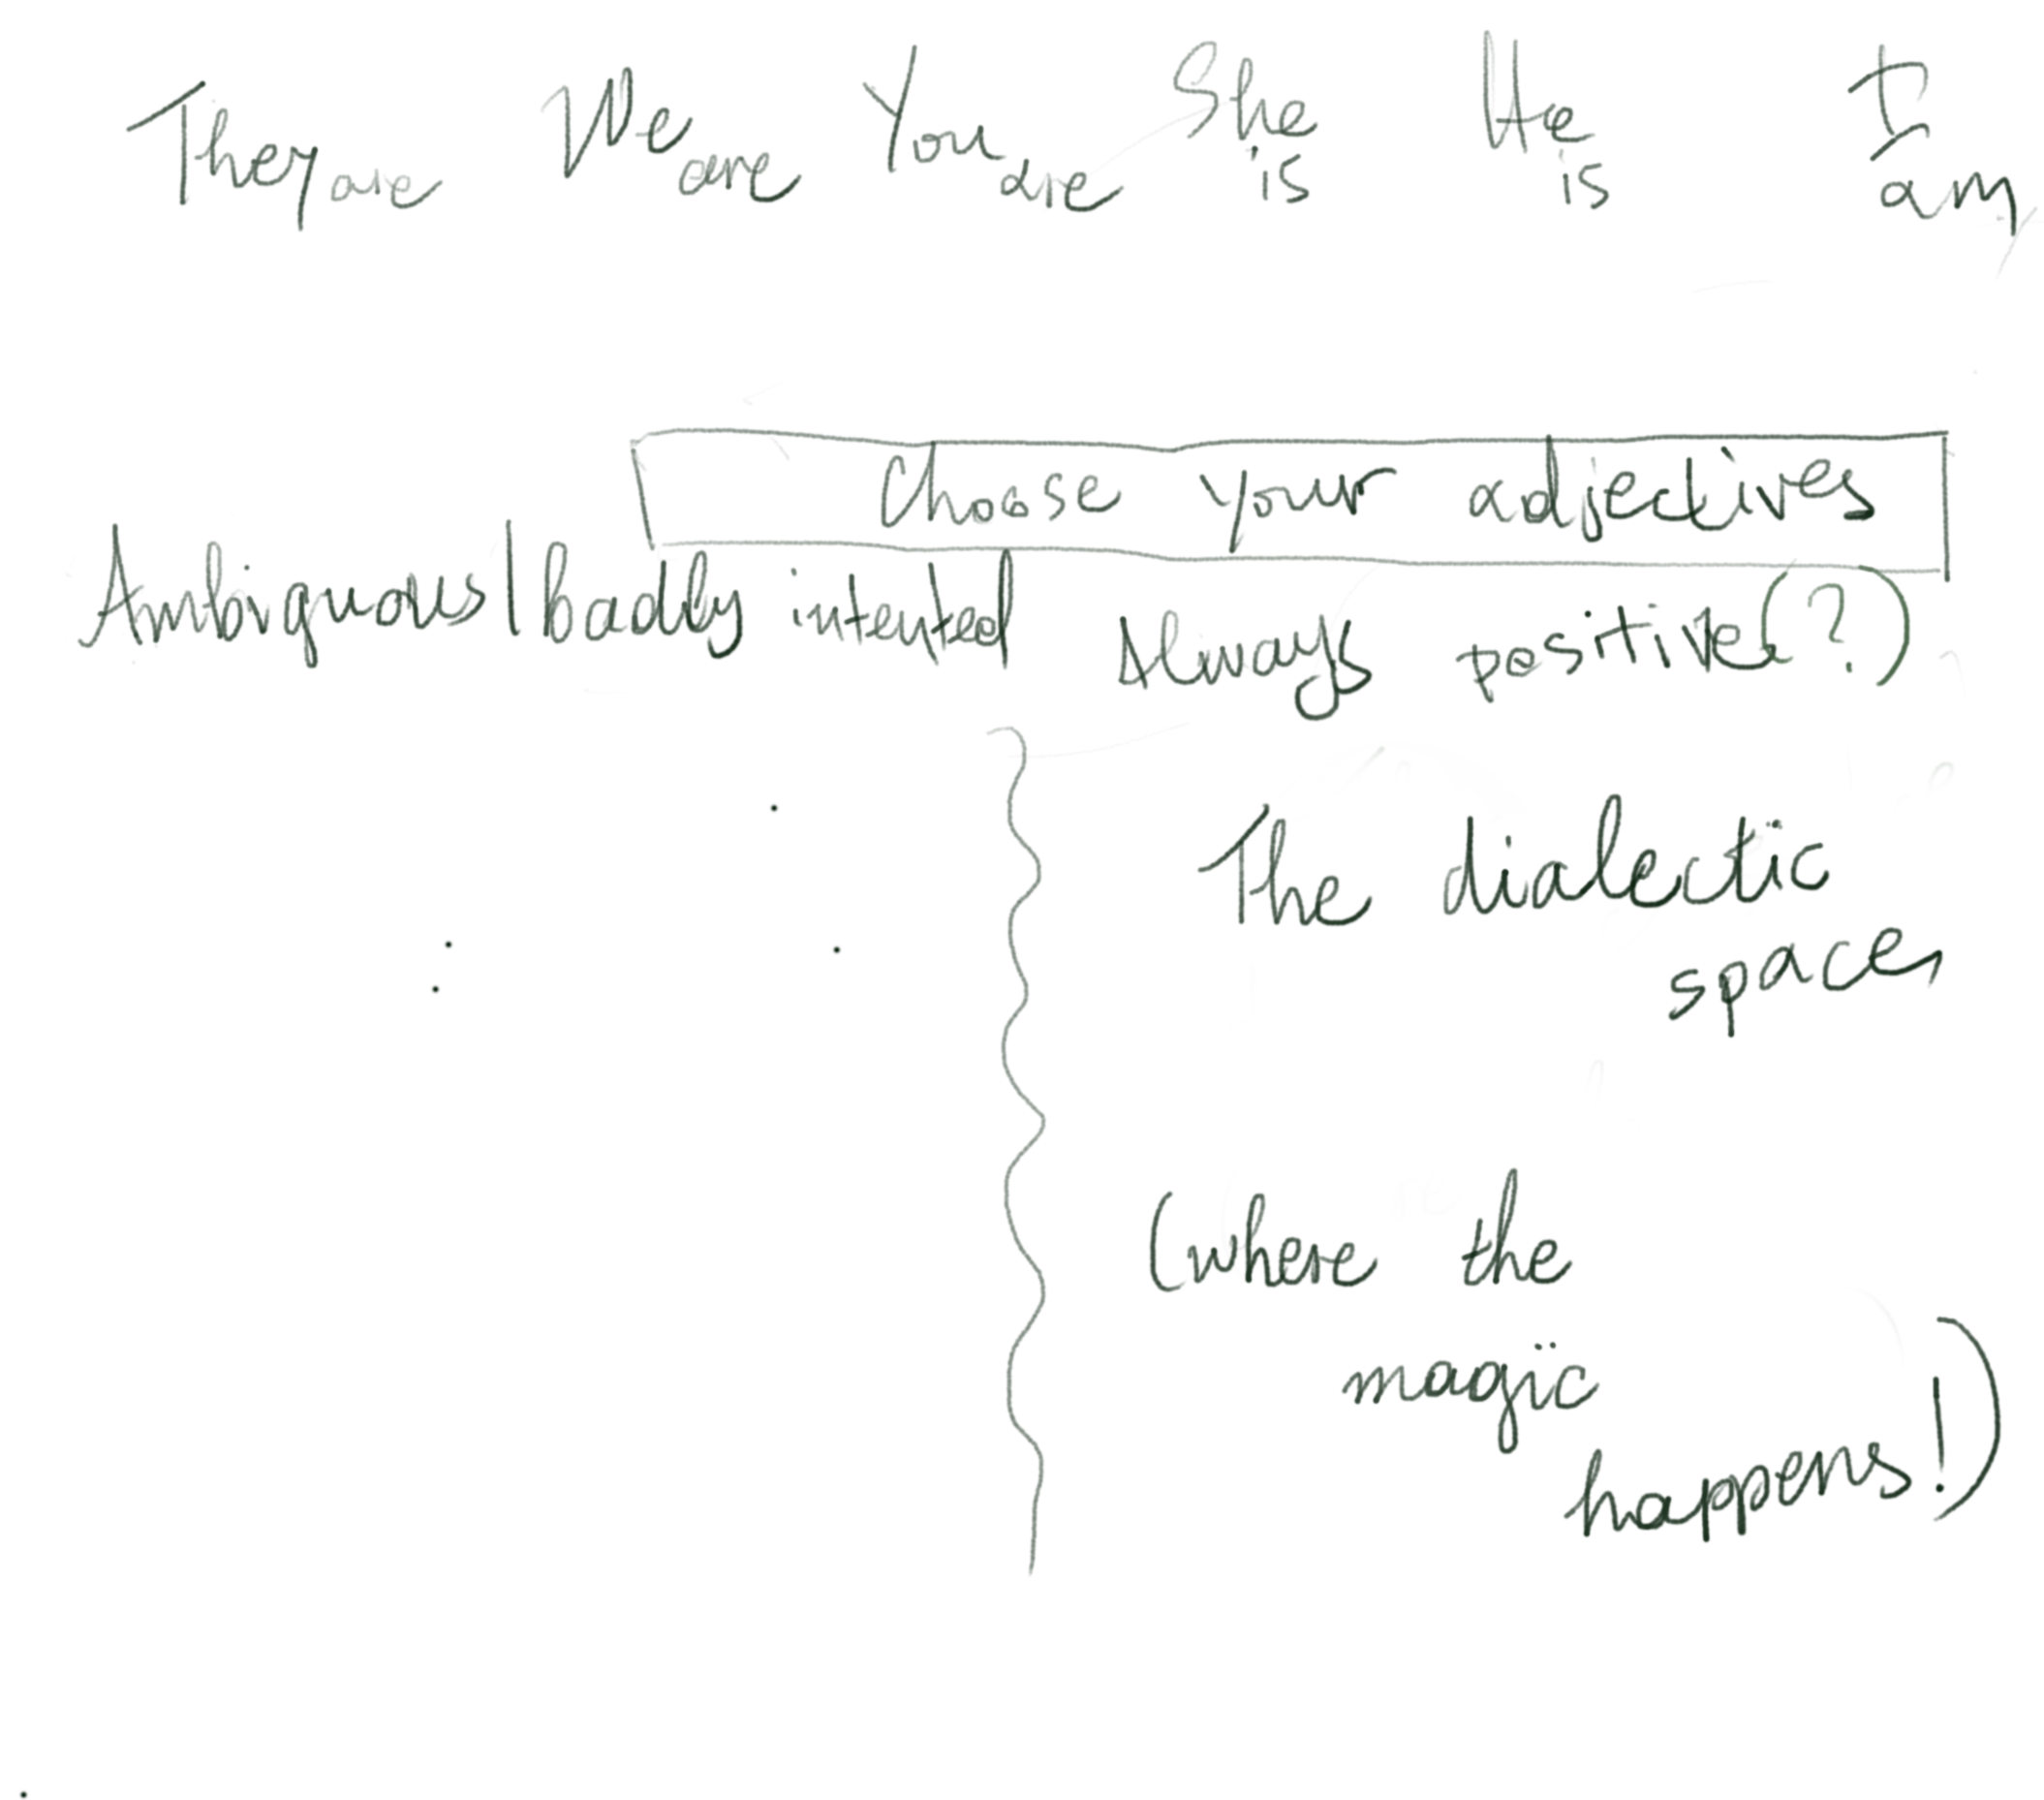 They are We are You are She is He is I am
Choose your adjectives
Ambiguous/badly intented Always positive(?)
The dialectic
space,
(where the
magic
happens!)